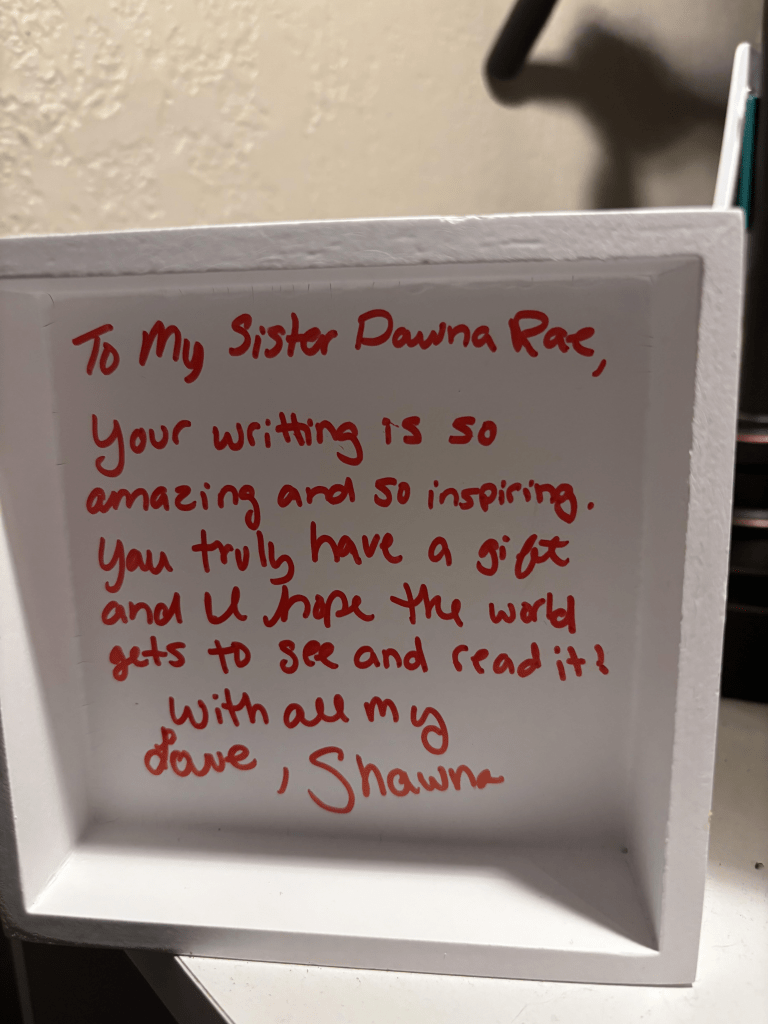 To My Sister Dawna Rae,
Your writting is so
amazing and so inspiring.
You truly have a gift
and U hope the world
gets to see and read it!
With all my
Love, Shawna